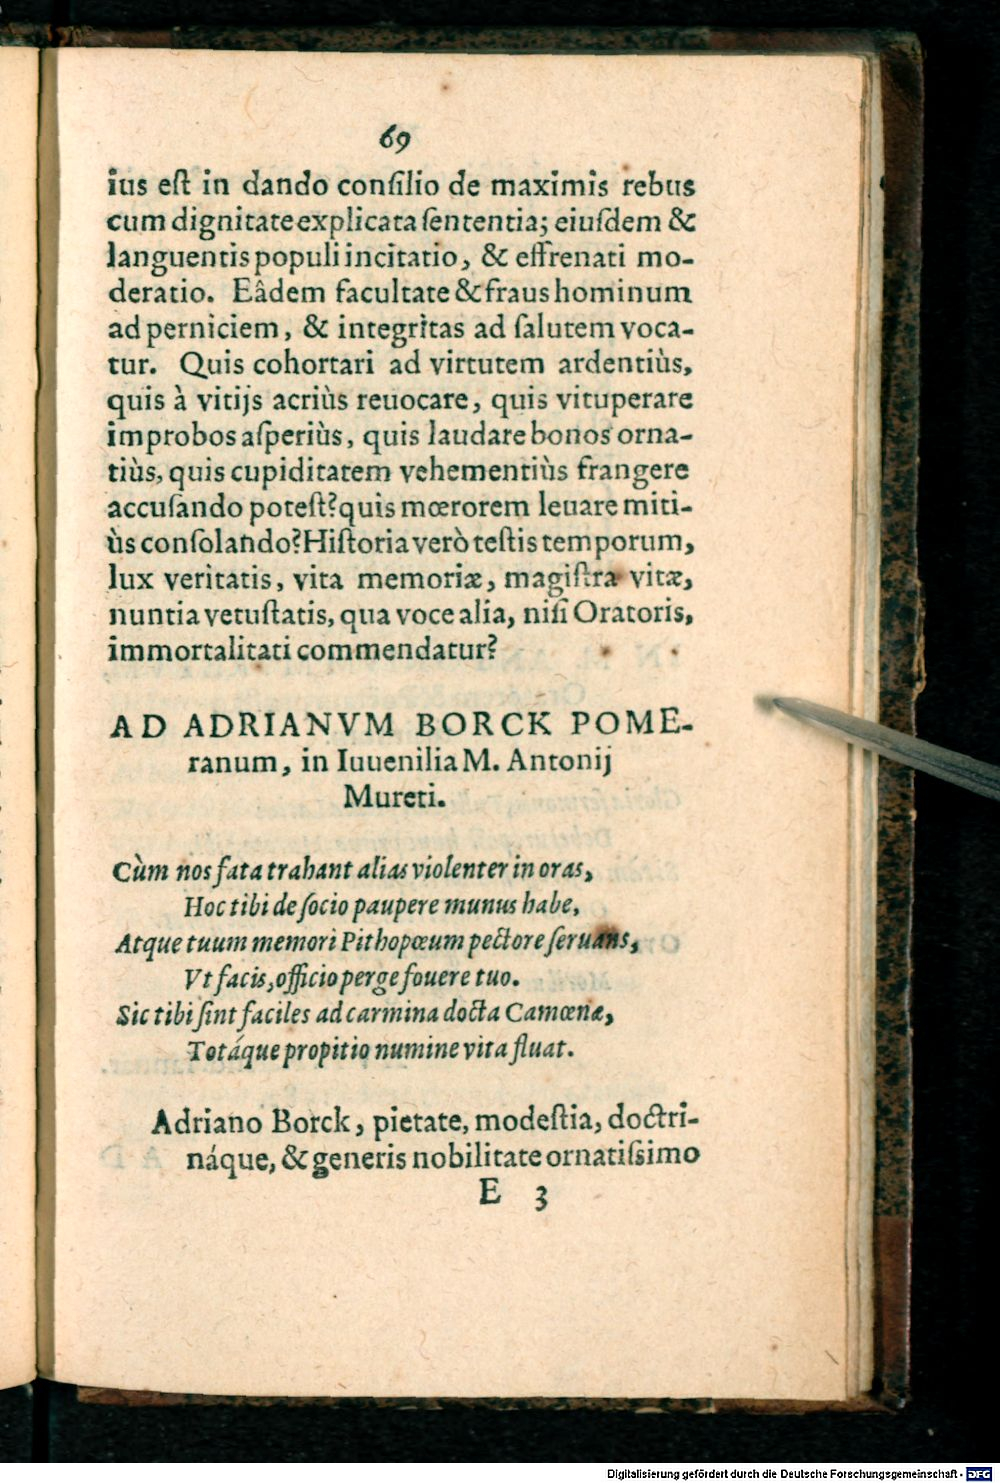 69
ius eſt in dando conſilio de maximis rebus
cum dignitate explicata ſententia; eiuſdem &
languentis populi incitatio, & effrenati mo-
deratio. Eâdem facultate & fraus hominum
ad perniciem, & integritas ad ſalutem voca-
tur. Quis cohortari ad virtutem ardentiùs,
quis à vitijs acriùs reuocare, quis vituperare
improbos aſperiùs, quis laudare bonos orna-
tiùs, quis cupiditatem vehementiùs frangere
accuſando poteſt? quis mœrorem leuare miti-
ùs conſolando? Hiſtoria verò teſtis temporum,
lux veritatis, vita memoriæ, magiſtra vitæ,
nuntia vetuſtatis, qua voce alia, niſi Oratoris,
immortalitati commendatur?
AD ADRIANVM BORCK POME-
ranum, in Iuuenilia M. Antonij
Mureti.
Cùm nos fata trahant alias violenter in oras,
Hoc tibi de ſocio paupere munus habe,
Atque tuum memori Pithopœum pectore ſeruans,
Vt facis, officio perge fouere tuo.
Sic tibi ſint faciles ad carmina docta Camœnæ,
Totáque propitio numine vita fluat.
Adriano Borck, pietate, modeſtia, doctri-
náque, & generis nobilitate ornatiſsimo
E 3
Digitalisierung gefördert durch die Deutsche Forschungsgemeinschaft - DFG